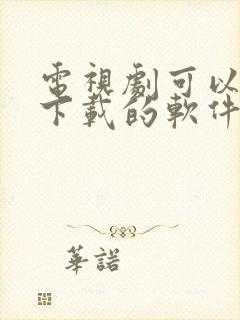 電視劇可以
下載的軟件
華諾